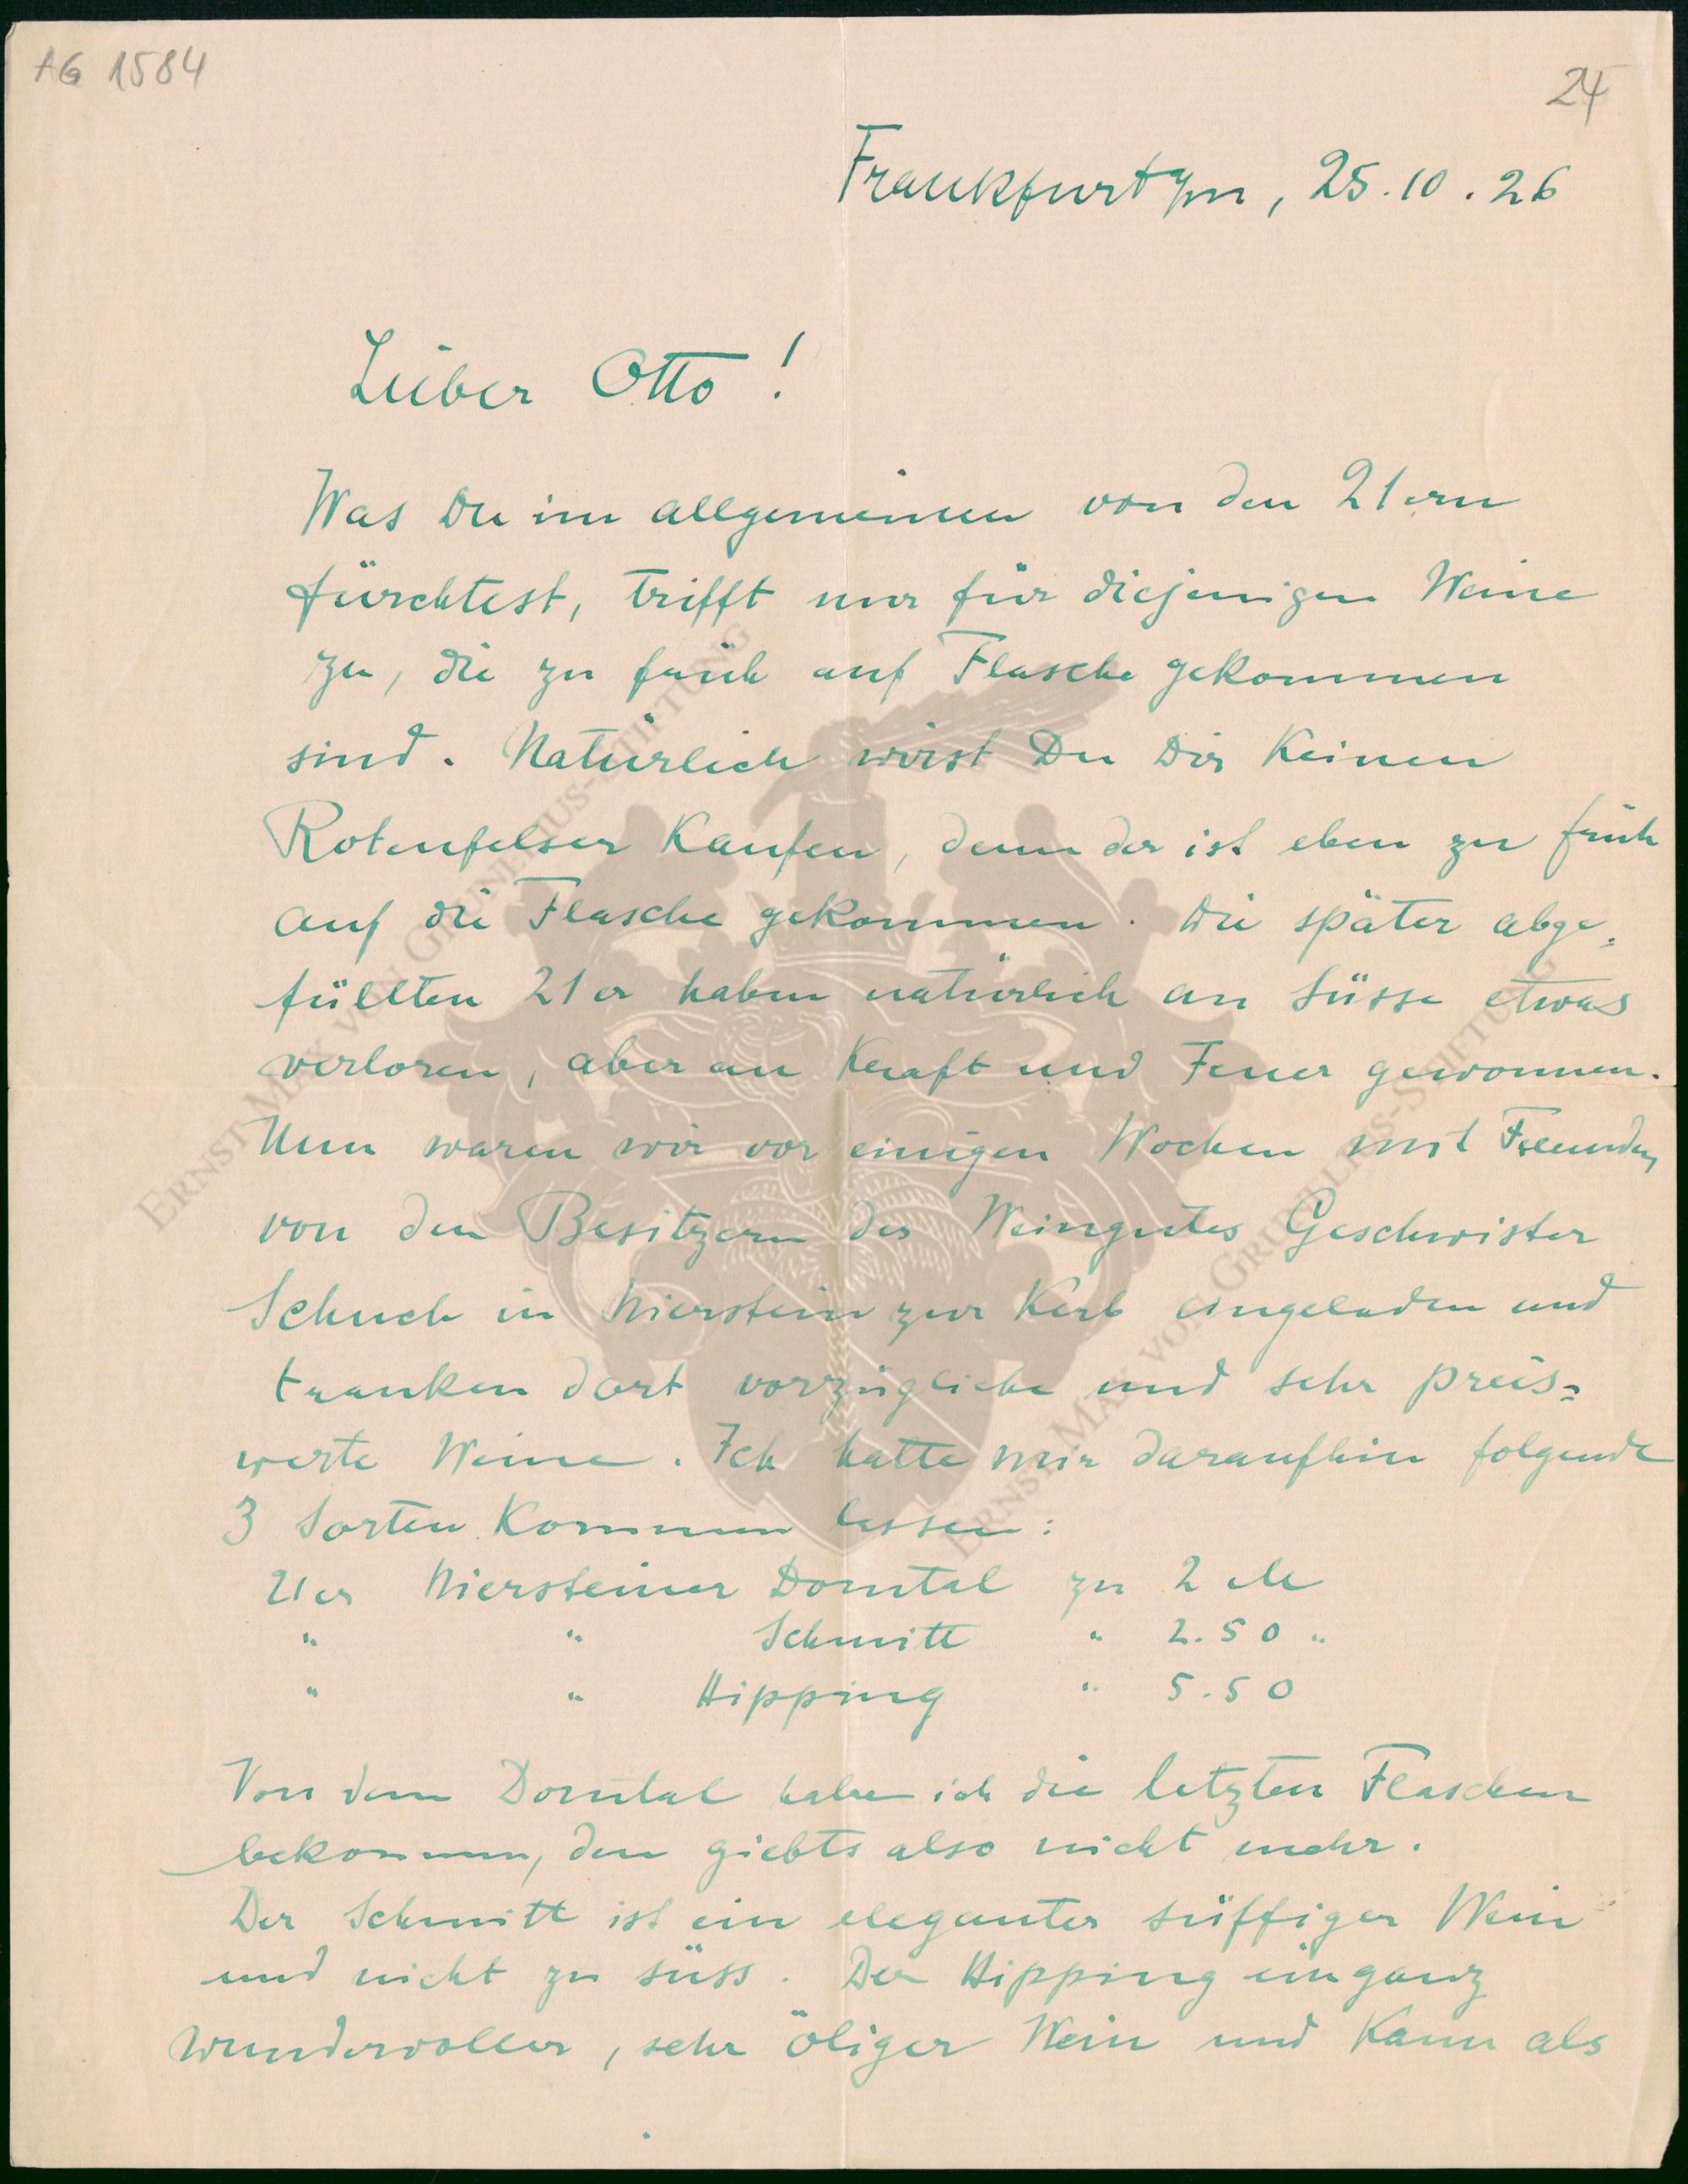 AG 1584
24
Frankfurt a/m, 25.10.26
Lieber Otto!
Was Du im allgemeinen von den 21ern
fürchtest, trifft nur für diejenigen Weine
zu, die zu früh auf Flasche gekommen
sind. Natürlich wirst Du Dir keinen
Rotenfelser kaufen, denn der ist eben zu früh
auf die Flasche gekommen. Die später abge-
füllten 21er haben natürlich an Süsse etwas
verloren, aber an Kraft und Feuer gewonnen.
Nun waren wir vor einigen Wochen mit Freunden
von den Besitzern des Weingutes Geschwister
Schuch in Nierstein zur Kerb eingeladen und
tranken dort vorzügliche und sehr preis=
werte Weine. Ich hatte mir daraufhin folgende
3 Sorten kommen lassen:
21er Niersteiner Domtal zu 2 M
" " Schmitt " 2.50 "
" " Hipping " 5.50
Von dem Domtal habe ich die letzten Flaschen
bekommen, den giebts also nicht mehr.
Der Schmitt ist ein eleganter süffiger Wein
und nicht zu süss. Der Hipping ein ganz
wundervoller, sehr öliger Wein und kann als
ERNST MAX VON GRUNELIUS-STIFTUNG
ERNST MAX VON GRUNELIUS-STIFTUNG